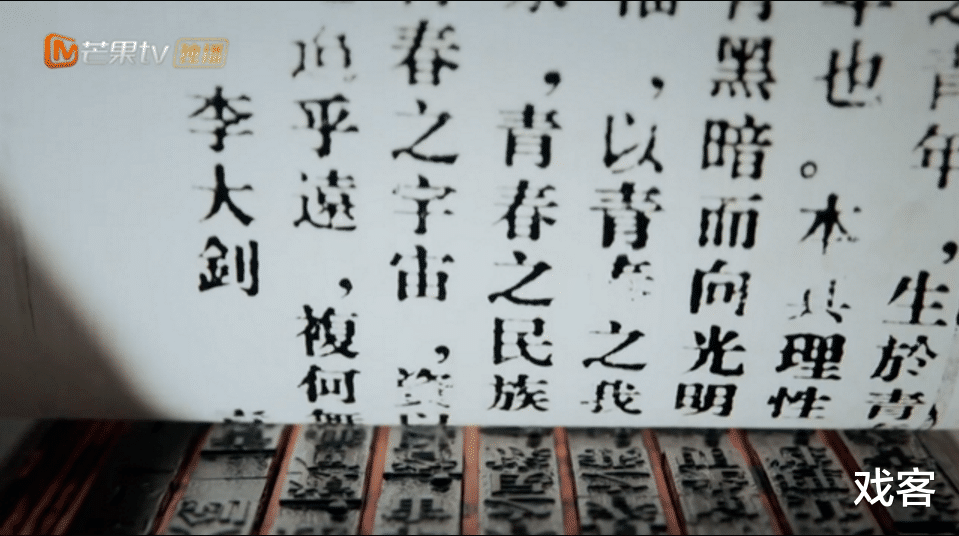 芒果tv
之青年，生於青
也。本其理性
黑暗而向光明
，以青年之我
，青春之民族
春之宇宙，資
乎遠，複何
李大釗
戏客